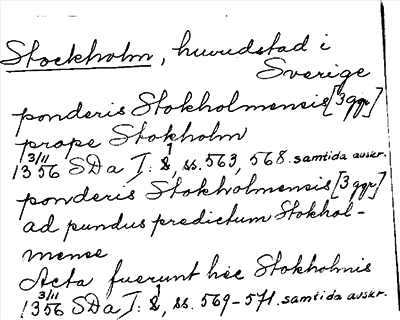 Stockholm, huvudstad i
Sverige
ponderis Stokholmensis [3 ggr]
prope Stokholm
3/11 1356 SDa I: 1, ss. 563, 568. samtida avskr.
ponderis Stokholmensis [3 ggr]
ad pundus predictum Stokhol-
mense
Acta fuerunt hec Stokholmis
3/11 1356 SDa I: 1, ss. 569-571. samtida avskr.